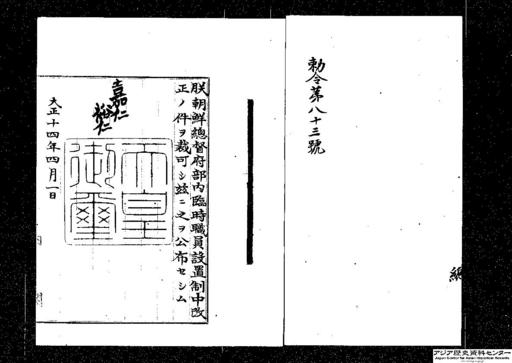 勅令第八十三號
朕朝鮮總督府部內臨時職員設置制中改
正ノ件ヲ裁可シ玆ニ之ヲ公布セシム
嘉仁
裕仁
天皇御璽
大正十四年四月一日
アジア歴史資料センター
Japan Center for Asian Historical Records